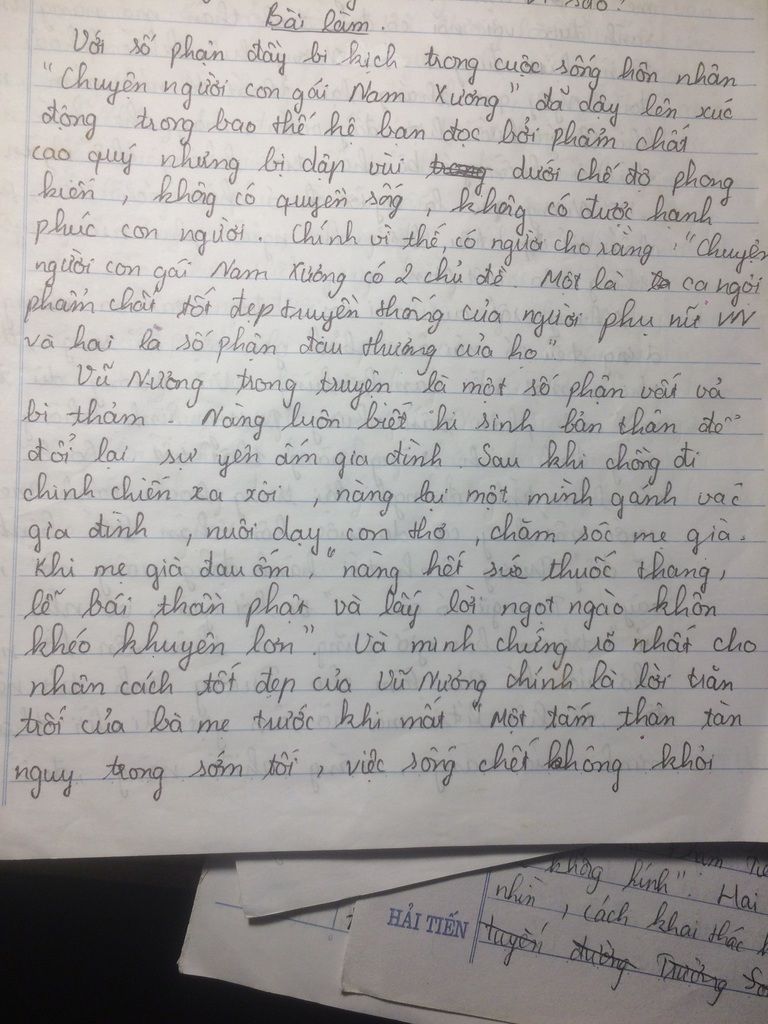 sao?
Bài làm.
Với số phận đầy bi kịch trong cuộc sống hôn nhân
"Chuyện người con gái Nam Xương" đã dậy lên xúc
động trong bao thế hệ bạn đọc bởi phẩm chất
cao quý nhưng bị dập vùi trong dưới chế độ phong
kiến, không có quyền sống, không có được hạnh
phúc con người. Chính vì thế, có người cho rằng: "Chuyện
người con gái Nam Xương có 2 chủ đề. Một là ca ngợi
phẩm chất tốt đẹp truyền thống của người phụ nữ VN
và hai là số phận đau thương của họ"
Vũ Nương trong truyện là một số phận vất vả
bi thảm. Nàng luôn biết hi sinh bản thân để
đổi lại sự yên ấm gia đình. Sau khi chồng đi
chinh chiến xa xôi, nàng lại một mình gánh vác
gia đình, nuôi dạy con thơ, chăm sóc mẹ già.
Khi mẹ già đau ốm, "nàng hết sức thuốc thang,
lễ bái thần phật và lấy lời ngọt ngào khôn
khéo khuyên lơn". Và minh chứng rõ nhất cho
nhân cách tốt đẹp của Vũ Nương chính là lời trăn
trối của bà mẹ trước khi mất "Một tấm thân tàn
nguy trong sớm tối, việc sống chết không khỏi
không hình". Hai
nhìn, cách khai thác
HẢI TIẾN
tuyến đường Trường So